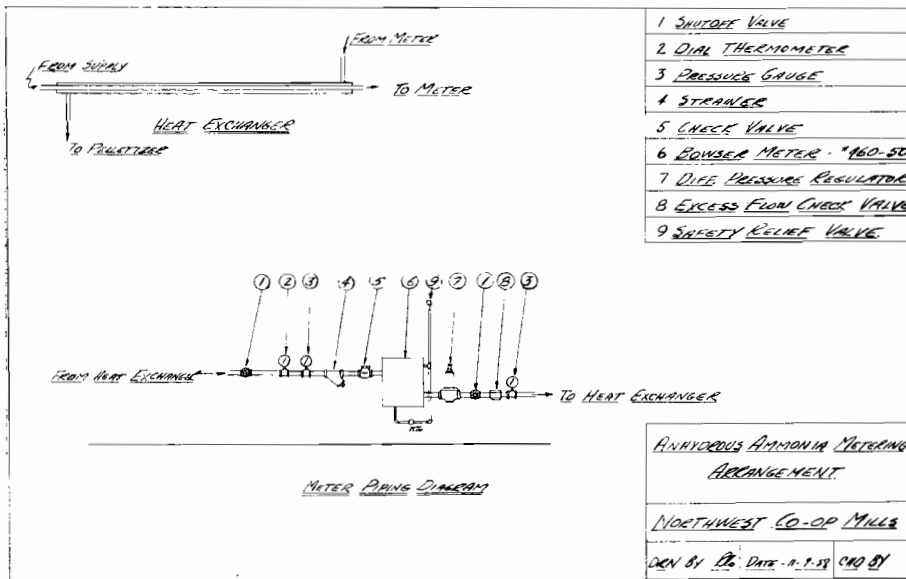 FROM METER
FROM SUPPLY
TO METER
HEAT EXCHANGER
TO PELLETIZER
1 SHUTOFF VALVE
2 DIAL THERMOMETER
3 PRESSURE GAUGE
4 STRAINER
5 CHECK VALVE
6 BOWSER METER -
7 DIFF. PRESSURE REGULATOR
8 EXCESS FLOW CHECK VALVE
9 SAFETY RELIEF VALVE.
1 2 3 4 5 6 9 7 1 8 3
FROM HEAT EXCHANGE
TO HEAT EXCHANGER
METER PIPING DIAGRAM
ANHYDROUS AMMONIA METERING
ARRANGEMENT.
NORTHWEST CO-OP MILLS
DRN BY DATE - 11-9-58 CKD BY